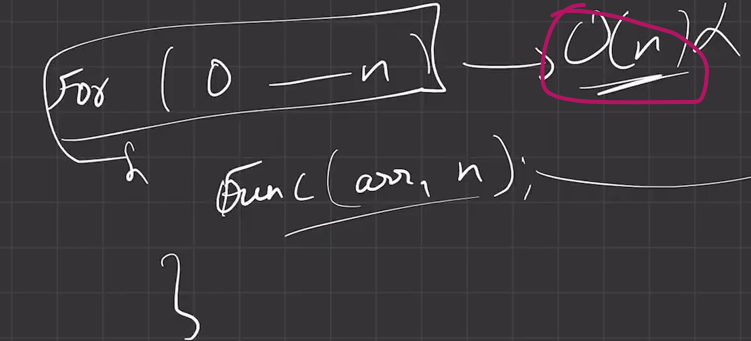 For ( 0 — n ) → O(n) x
{
func(arr, n);
}